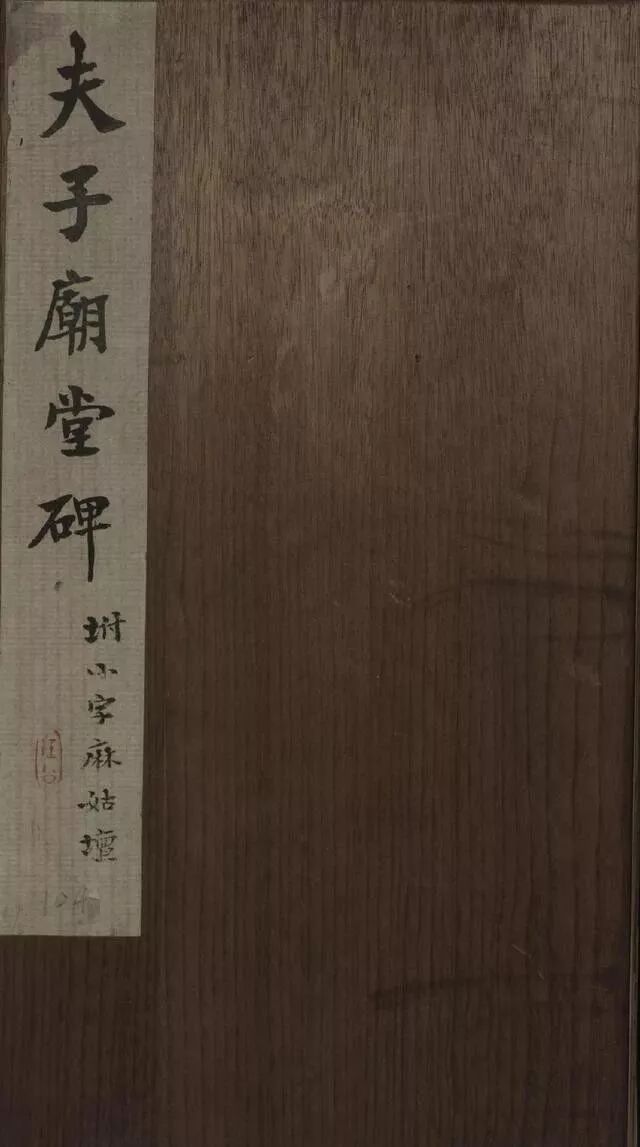 夫子廟堂碑
坿小字麻姑壇